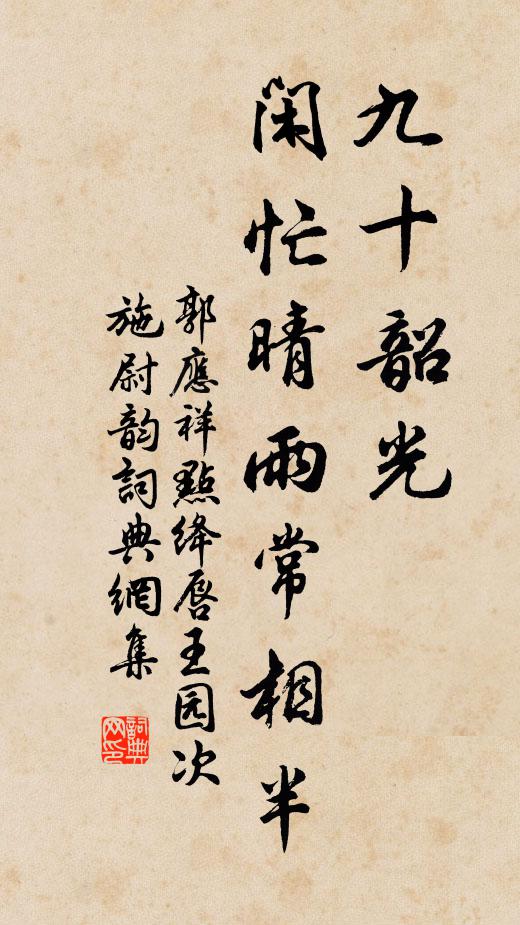 九十韶光
闲忙晴雨常相半
郭應祥點绛唇王园次
施尉韵詞典網集
詞典网印